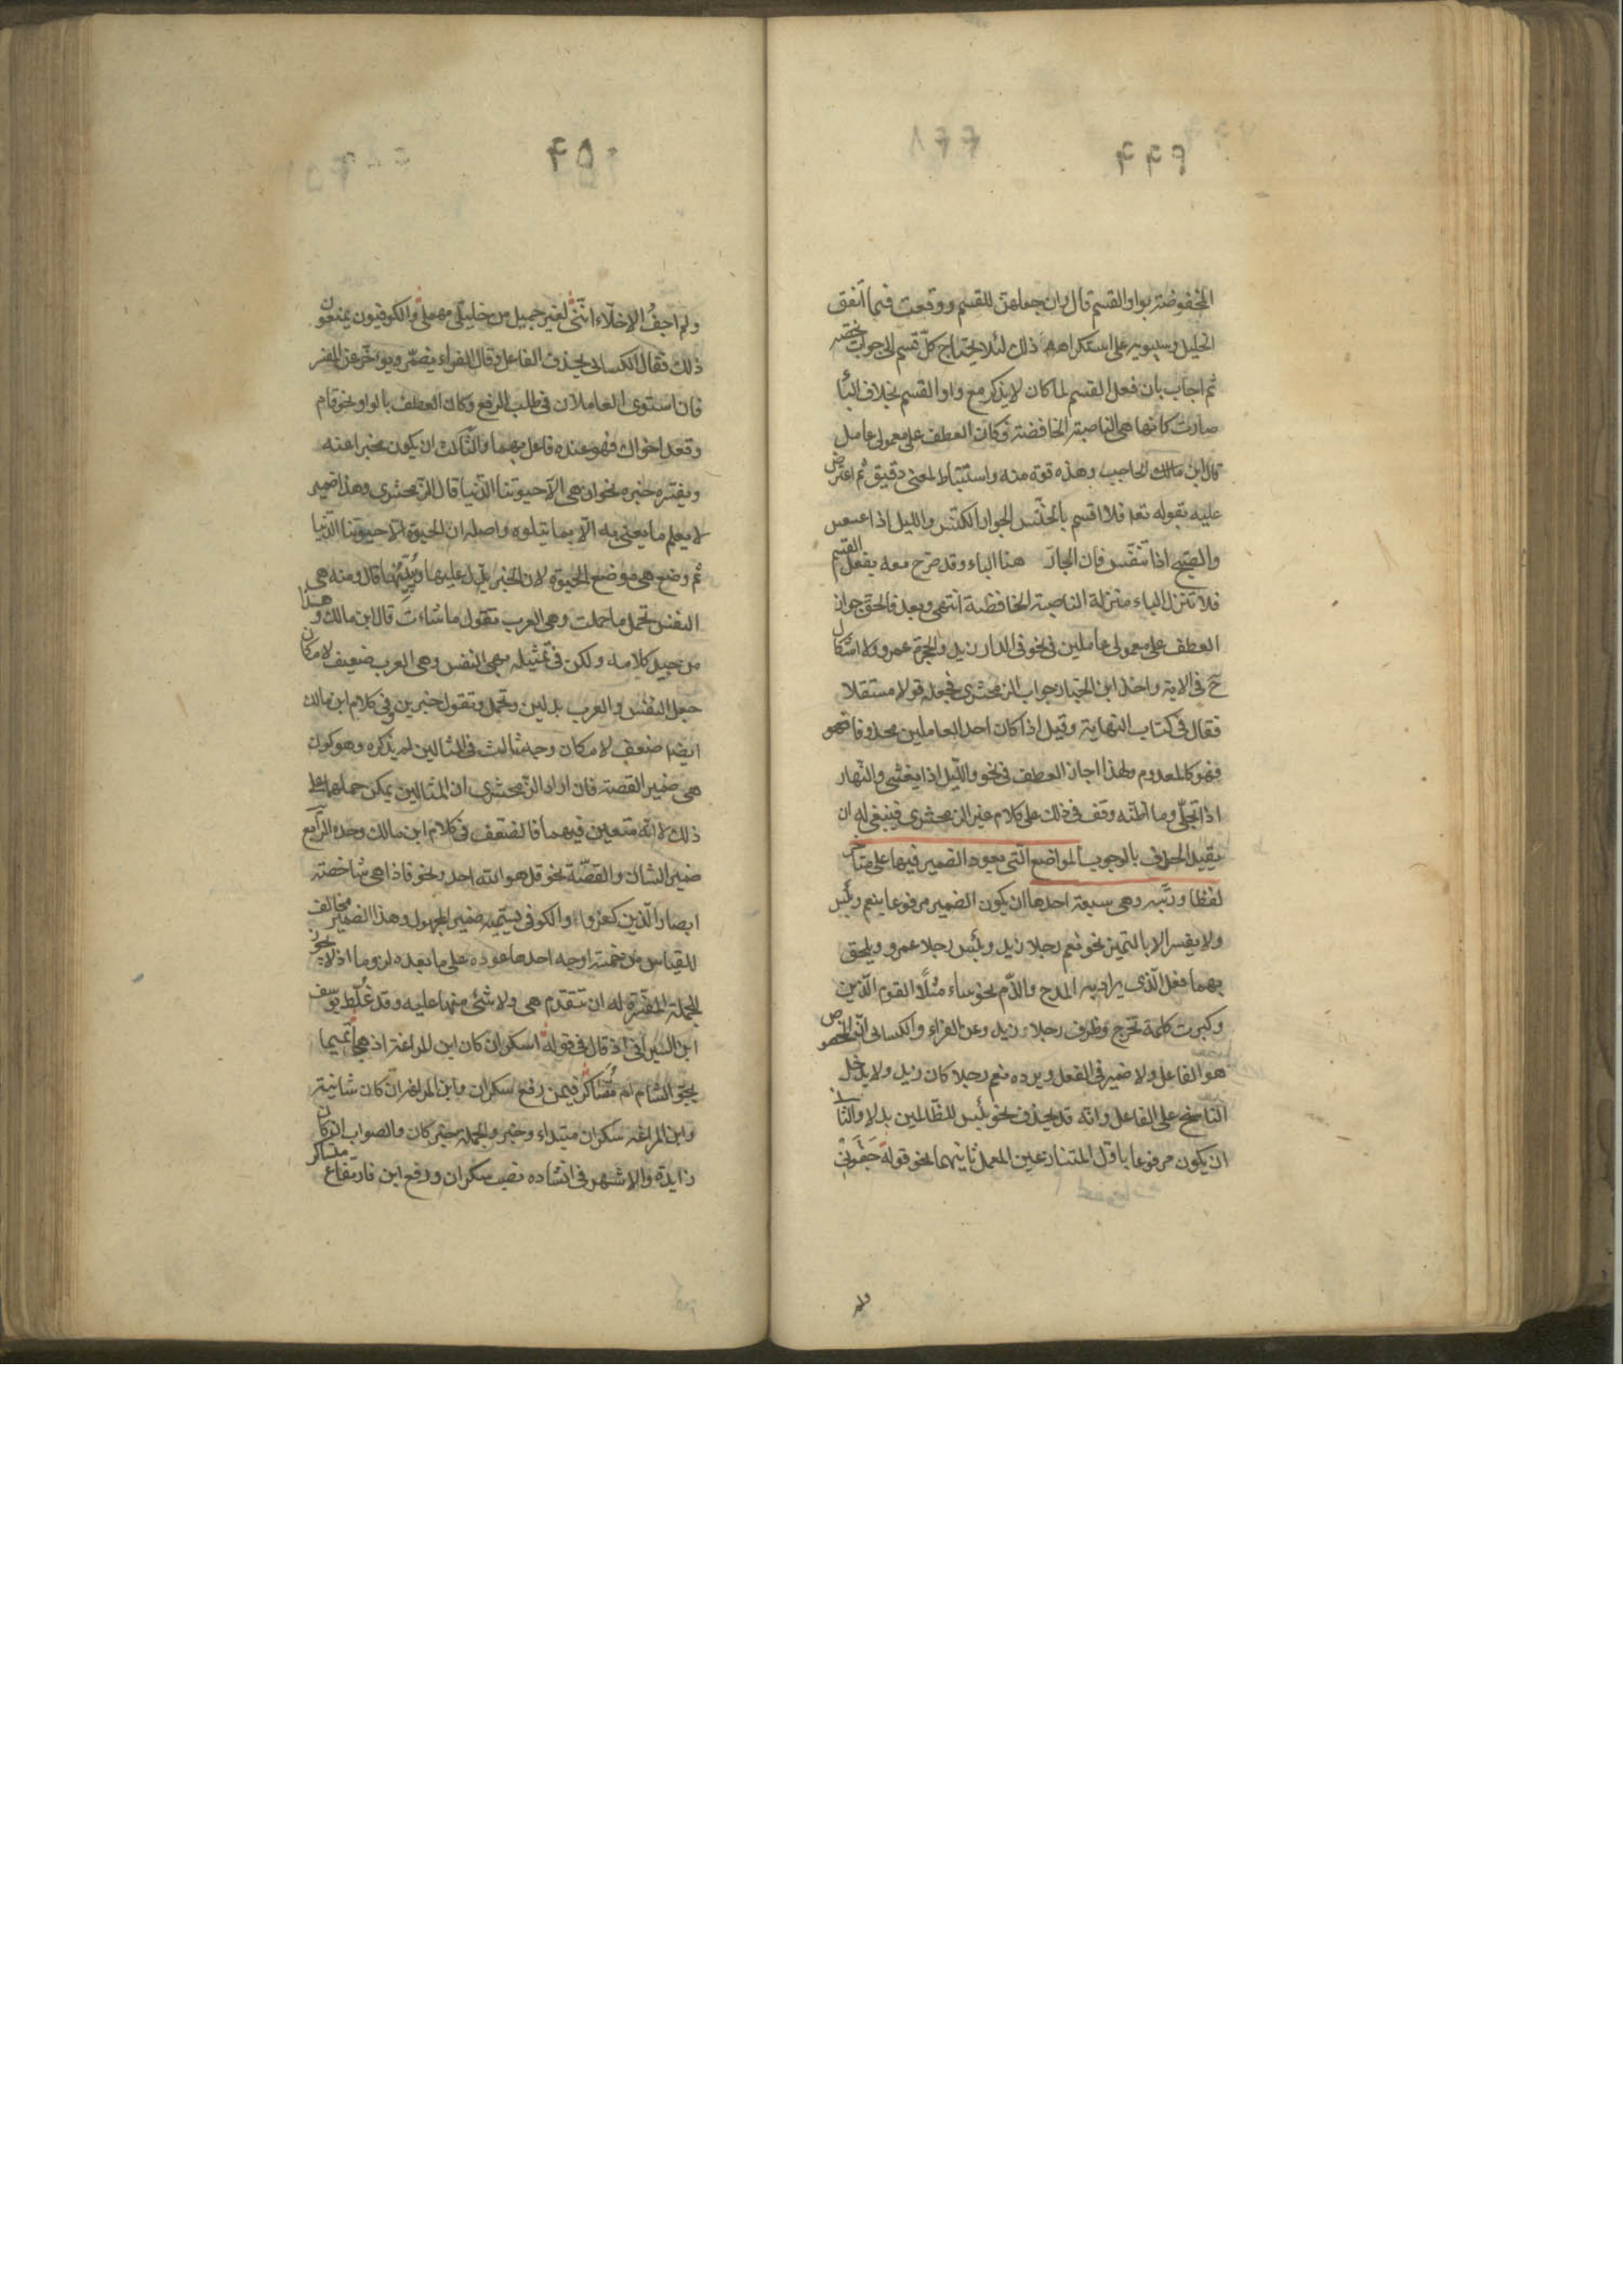 المخفوضة بواو القسم قال وان جعلهن للقسم ووقعت فيما اتفق
الخليل وسيبويه على استكراهه ذلك لئلا يحتاج كل قسم الى جواب يخصه
ثم اجاب بان فعل القسم لما كان لا يذكر مع واو القسم بخلاف البأ
صارت كانها هى الناصبة الخافضة فكان العطف على معمولى عامل
قال ابن الحاجب وهذه قوة منه واستنباط لمعنى دقيق ثم اعترض
عليه بقوله تعا فلا اقسم بالخنّس الجوار الكنّس والليل اذا عسعس
والصبح اذا تنفّس فان الجارّ هنا الباء وقد صرح معه بفعل القسم
فلا تنزل الباء منزلة الناصبة الخافضة انتهى وبعد فالحق جواز
العطف على معمولى عاملين فى نحو فى الدار زيد والحجرة عمرو ولا اشكال
ح فى الاية واخذ ابن الخباز جواب الزمخشرى فجعله قولا مستقلا
فقال فى كتاب النهاية وقيل اذا كان احد العاملين محذوفا فهو
فهو كالمعدوم ولهذا اجاز العطف فى نحو والليل اذا يغشى والنهار
اذا تجلّى وما اظنه وقف فى ذلك على كلام غير الزمخشرى فينبغى له ان
يقيد الحذف بالوجوب المواضع التى يعود الضمير فيها على متأخر
لفظا ورتبه وهى سبعة احدها ان يكون الضمير مرفوعا بنعم وبئس
ولا يفسر الا بالتميز نحو نعم رجلا زيد وبئس رجلا عمرو ويلحق
بهما فعل الذى يراد به المدح والذّم نحو ساء مثلًا القوم الذين
وكبرت كلمة تخرج وظرف رجلا زيد وعن الفراء والكسائى انّ المخصوص
هو الفاعل ولا ضمير فى الفعل ويرده نعم رجلا كان زيد ولا يدخل
الناسخ على الفاعل وانه قد يحذف نحو بئس للظّالمين بدلا والثانى
ان يكون مرفوعا باوّل المتنازعين المعمل ثانيهما نحو قوله جَفَونِى
ولم اجفُ الاخلّاء انّنى لغير جميل من خليلىّ مهملٌ والكوفيون يمنعون
ذلك فقال الكسائى يحذف الفاعل وقال الفراء يضمر ويؤخر عن المفسر
فان استوى العاملان فى طلب الرفع وكان العطف بالواو نحو قام
وقعد اخواك فهو عنده فاعل بهما والثّالث ان يكون مخبرا عنه
ويفسّره خبره نحو ان هى الا حيوتنا الدّنيا قال الزمخشرى وهذا ضمير
لا يعلم ما يعنى به الّا بما يتلوه واصله ان الحيوة الّا حيوتنا الدّنيا
ثم وضع هى موضع الحيوة لان الخبر يدل عليها ويُبيّنها قال ومنه هى
النفس تحمل ما حملت وهى العرب تقول ما شاءت قال ابن مالك وهذا
من جيد كلامه ولكن فى تمثيله بهى النفس وهى العرب ضعيف لامكان
جعل النفس والعرب بدلين وتحمل وتقول خبرين وفى كلام ابن مالك
ايضا ضعف لامكان وجه ثالث فى المثالين لم يذكره وهو كون
هى ضمير القصة فان اراد الزمخشرى ان المثالين يمكن حملهما على
ذلك لا انّه متعين فيهما فالضعف فى كلام ابن مالك وحده الرابع
ضمير الشان والقصّة نحو قل هو الله احد ونحو فاذا هى شاخصة
ابصار الذين كفروا والكوفى يسميه ضمير المجهول وهذا الضمير مخالف
للقياس من خمسة اوجه احدها عوده على ما بعده لزوما اذ لا يجوز
للجملة المفسّرة له ان تتقدم هى ولا شئ منها عليه وقد غلط يوسف
ابن السيرافى اذ قال فى قوله اسكران كان ابن المراغة اذ هجا تميما
بجوّ الشام ام مُتساكرُ فيمن رفع سكران وابن المراغة ان كان شانية
وابن المراغه سكران مبتداء وخبر والجملة خبر كان والصواب ان كان
زايدة والاشهر فى انشاده نصب سكران ورفع ابن فارتفاع متساكر
ولم